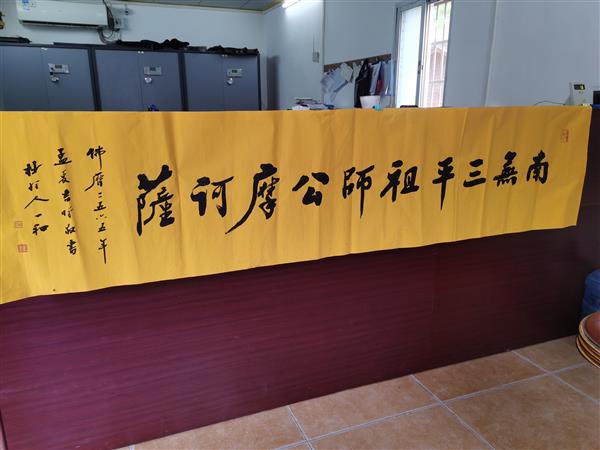 南無三平祖師公摩訶薩
佛曆二五六五年
孟夏吉時敬書
人一和